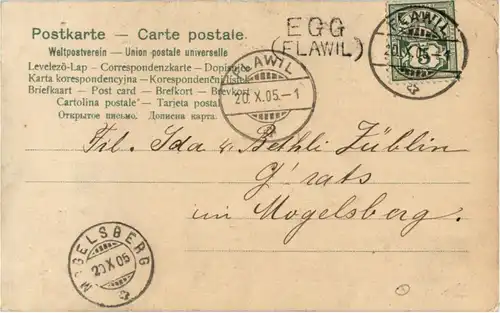 Postkarte - Carte postale.
Weltpostverein - Union postale universelle
Levelező-Lap - Correspondenzkarte - Dopisnice
Karta korespondencyjna - Korespondenční lístek
Briefkaart - Post card - Brefkort - Brevkort
Cartolina postale - Tarjeta postal
Открытое письмо. Дописна карта.
EGG
(FLAWIL)
FLAWIL
20. X. 05. - 1
FLAWIL
20. X. 05.
5
Frl. Ida u. Bethli Züblin
G'rats
im Mogelsberg.
MOGELSBERG
20 X 05